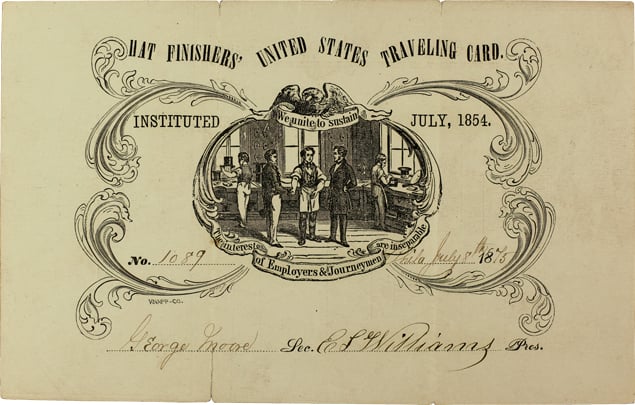 HAT FINISHERS' UNITED STATES TRAVELING CARD.
We unite to sustain
INSTITUTED JULY, 1854.
The interests of Employers & Journeymen are inseparable
No. 1089 Phila July 8th 1875
George Moore Sec. E S Williams Pres.